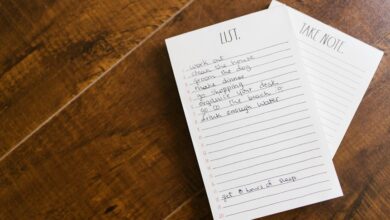 LIST.
work out
clean the house
groom the dog
make dinner
go shopping
organize your desk
go to the beach
drink enough water
get 8 hours of sleep
TAKE NOTE.